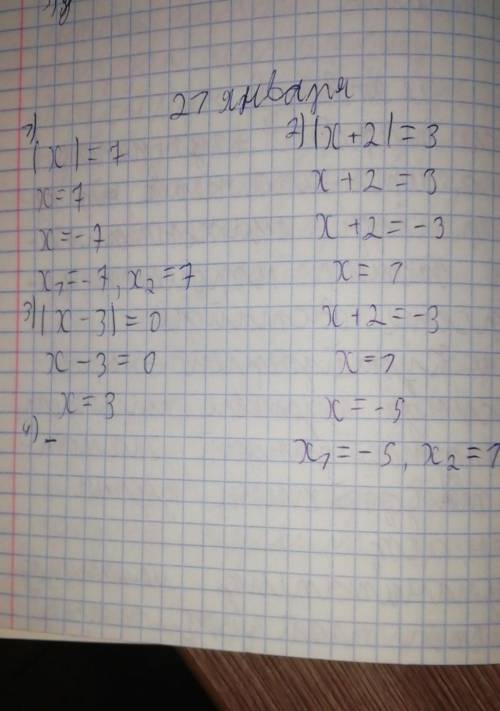 21 января
1)
|x| = 7
x = 7
x = -7
x₁ = -7, x₂ = 7
3) |x - 3| = 0
x - 3 = 0
x = 3
4) -
2) |x + 2| = 3
x + 2 = 3
x + 2 = -3
x = 1
x + 2 = -3
x = 1
x = -5
x₁ = -5, x₂ = 1